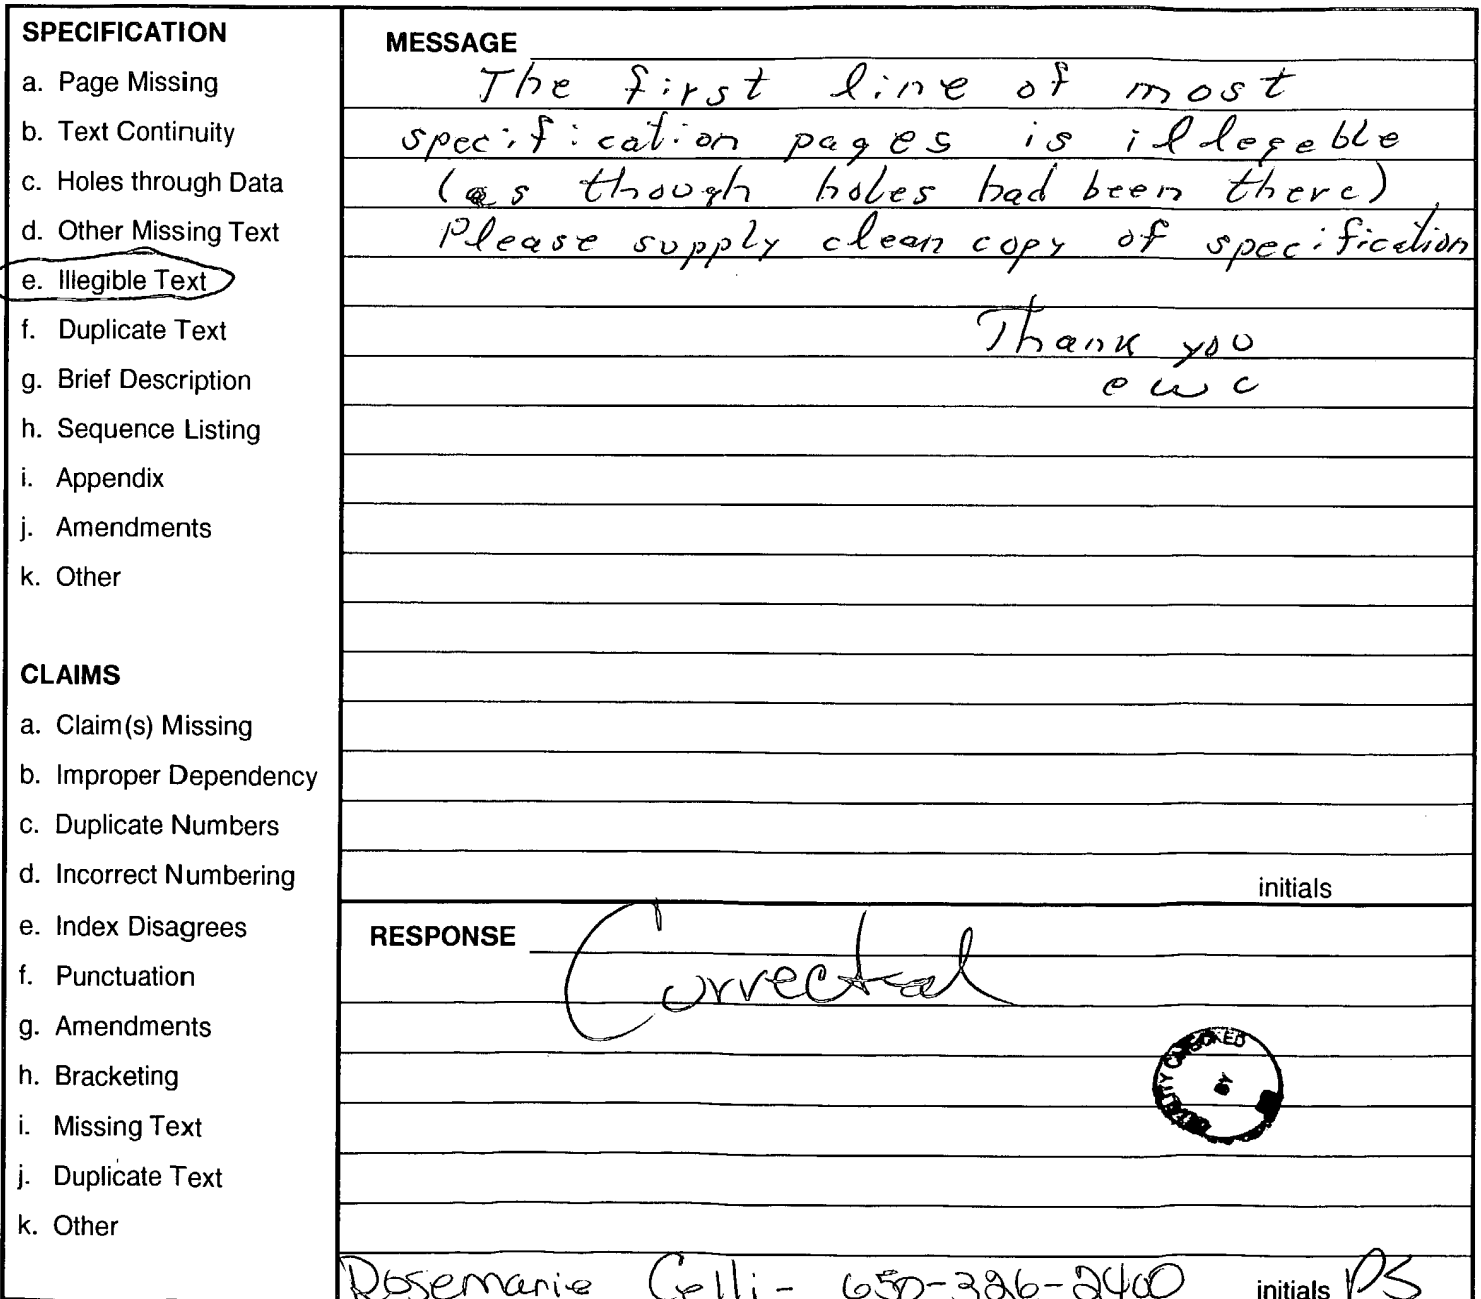 SPECIFICATION
a. Page Missing
b. Text Continuity
c. Holes through Data
d. Other Missing Text
e. Illegible Text
f. Duplicate Text
g. Brief Description
h. Sequence Listing
i. Appendix
j. Amendments
k. Other
CLAIMS
a. Claim(s) Missing
b. Improper Dependency
c. Duplicate Numbers
d. Incorrect Numbering
e. Index Disagrees
f. Punctuation
g. Amendments
h. Bracketing
i. Missing Text
j. Duplicate Text
k. Other
MESSAGE
The first line of most
specification pages is illegeble
(as though holes had been there)
Please supply clean copy of specification
Thank you
ewc
initials
RESPONSE
Corrected
CHECKED
BY
Rosemarie Celli - 650-326-2400 initials